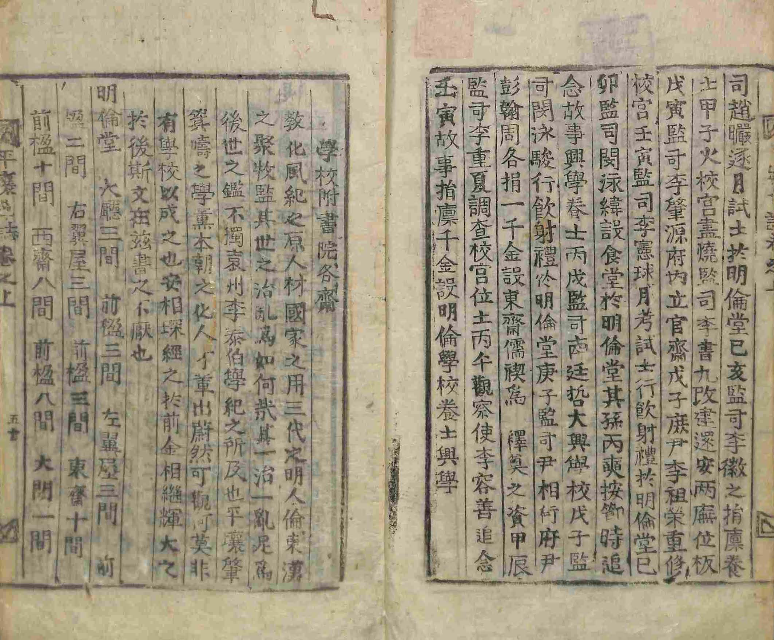 司趙曮逐月試士於明倫堂己亥監司李徽之捐廩養
士甲子火校宮盡燒監司李書九改建還安兩廡位板
戊寅監司李肇源府內立官齋戊子庶尹李祖榮重修
校宮壬寅監司李憲球月考試士行飮射禮於明倫堂己
卯監司閔泳緯設食堂於明倫堂其孫丙奭按節時追
念故事興學養士丙戌監司南廷哲大興學校戊子監
司閔泳駿行飮射禮於明倫堂庚子監司尹相衍府尹
彭翰周各捐一千金設東齋儒禊爲釋奠之資甲辰
監司李重夏調查校宮位土丙午觀察使李容善追念
壬寅故事捐廩千金設明倫學校養士興學
學校附書院各齋
敎化風紀之原人材國家之用三代定明人倫東漢
之聚牧監其世之治亂爲如何哉其一治一亂足爲
後世之鑑不獨袁州李泰伯學紀之所及也平壤肇
箕疇之學薰本朝之化人才輩出蔚然可觀何莫非
有學校以成之也安相琛經之於前金相繼輝大之
於後斯文在玆書之不厭也
明倫堂 大廳三間 前楹三間 左翼屋三間 前
楹二間 右翼屋三間 前楹三間 東齋十間
前楹十間 西齋八間 前楹八間 大門一間
平壤 誌 卷之上
五十